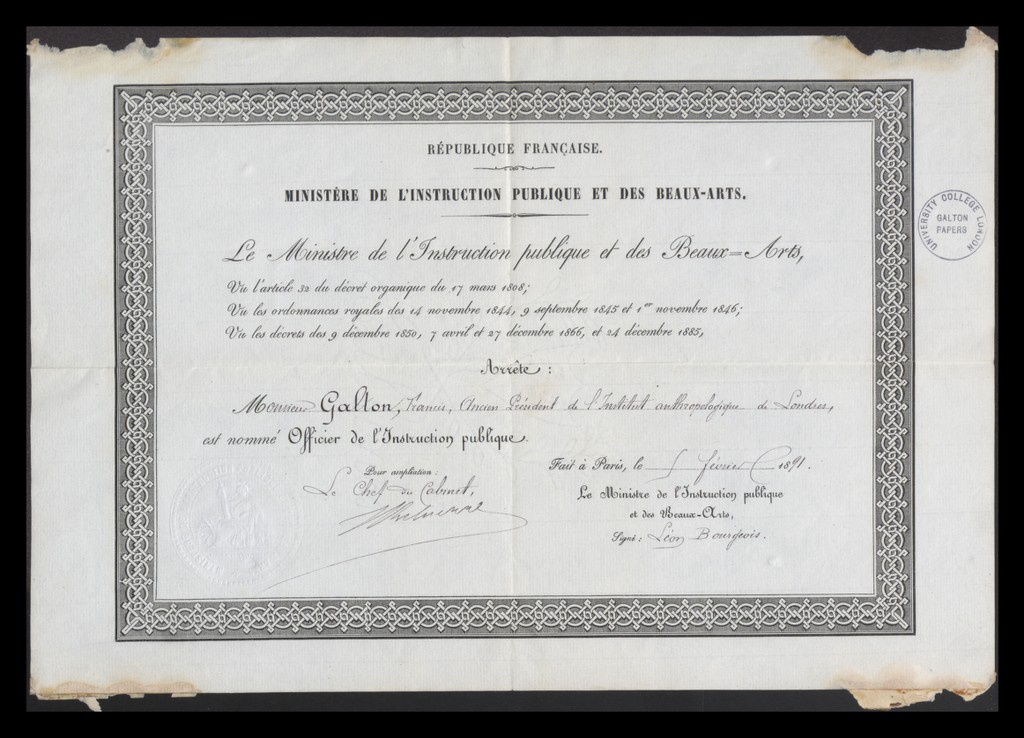 RÉPUBLIQUE FRANÇAISE.
MINISTÈRE DE L'INSTRUCTION PUBLIQUE ET DES BEAUX-ARTS.
Le Ministre de l'Instruction publique et des Beaux=Arts,
Vu l'article 32 du décret organique du 17 mars 1808;
Vu les ordonnances royales des 14 novembre 1844, 9 septembre 1845 et 1er novembre 1846;
Vu les décrets des 9 décembre 1850, 7 avril et 27 décembre 1866, et 24 décembre 1885,
Arrête :
Monsieur Galton, Francis, Ancien Président de l'Institut anthropologique de Londres,
est nommé Officier de l'Instruction publique.
Pour ampliation :
Le Chef du Cabinet,
Fait à Paris, le 5 février 1891.
Le Ministre de l'Instruction publique
et des Beaux-Arts,
Signé : Léon Bourgeois.
UNIVERSITY COLLEGE LONDON
GALTON
PAPERS